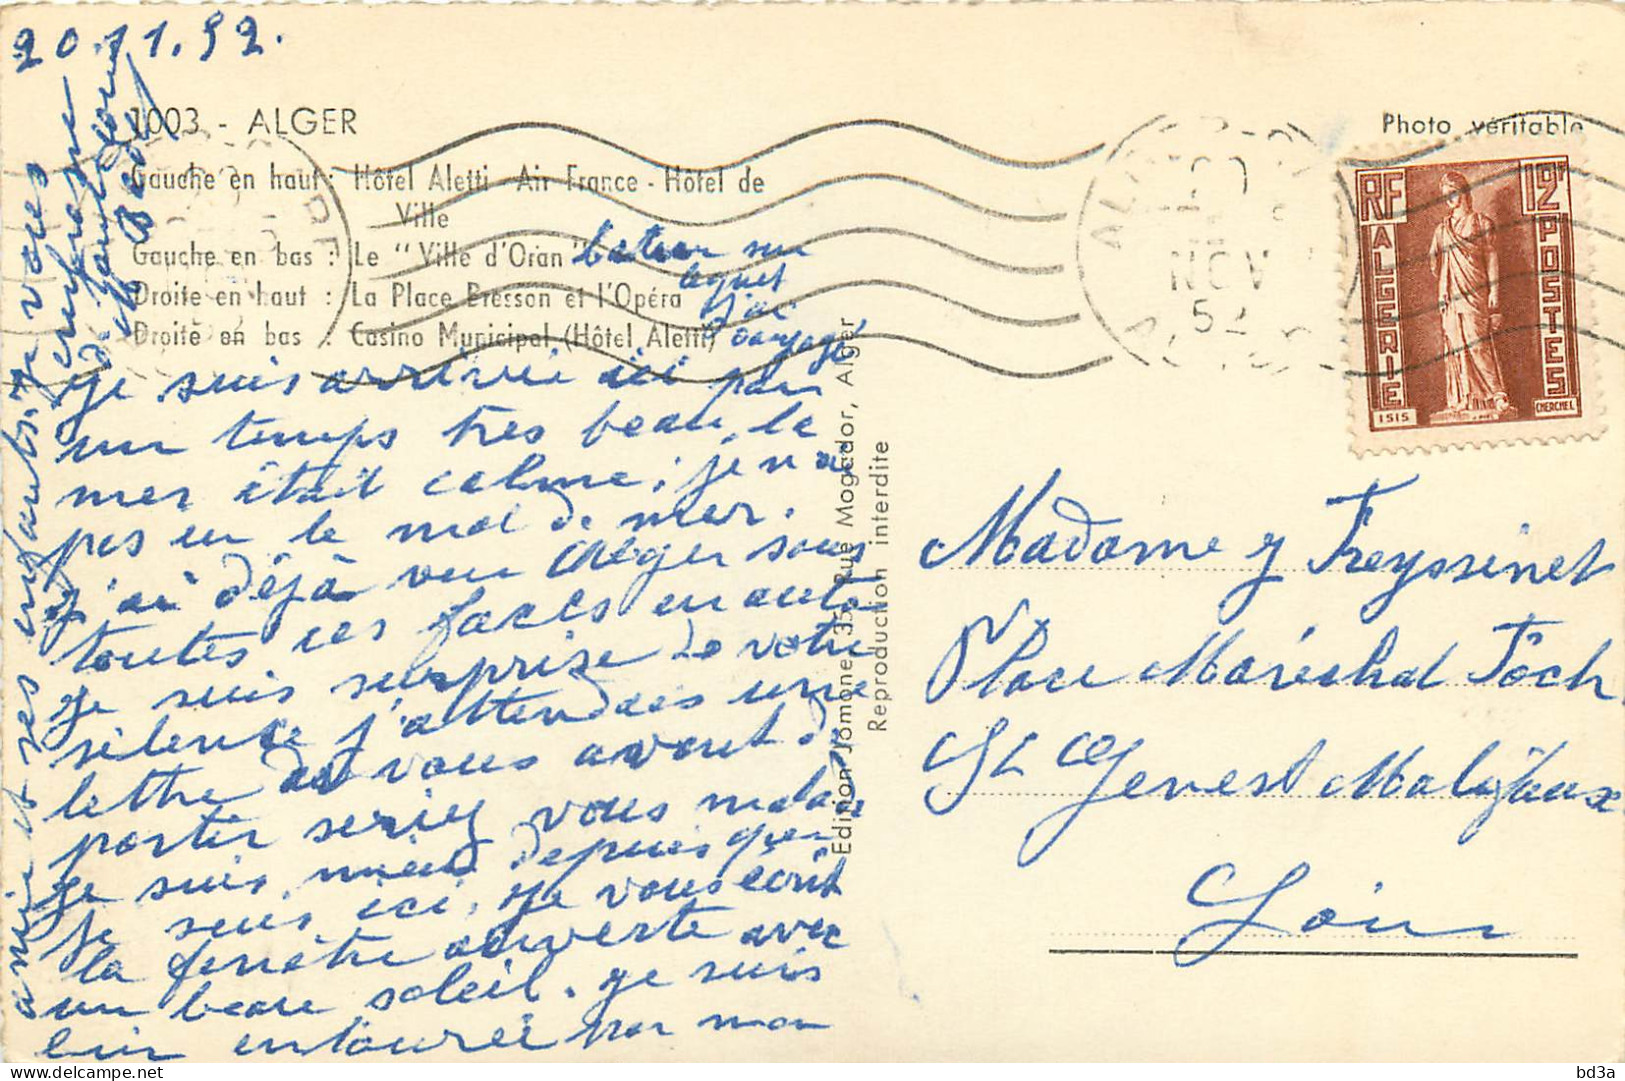 20.11.52.
1003 - ALGER
Photo véritable
Gauche en haut : Hôtel Aletti - Air France - Hôtel de
Ville
Gauche en bas : Le "Ville d'Oran" bateau sur
lequel
Droite en haut : La Place Bresson et l'Opéra
j'ai
Droite en bas : Casino Municipal (Hôtel Aletti)
voyagé
Je suis arrivée ici par
un temps très beau, la
mer était calme, je n'ai
pas eu le mal de mer.
J'ai déjà vu Alger sous
toutes ces faces en auto
Je suis surprise de votre
silence j'attendais une
lettre de vous avant de
partir seriez vous malade
Je suis mieux depuis que
je suis ici, je vous écris
la fenêtre ouverte avec
un beau soleil. Je suis
bien entourée par mon
amie et ses enfants. Je vous
embrasse
Edition Jomone, 35, Rue Mogador, Alger
Reproduction interdite
RF
12F
ALGERIE
POSTES
ISIS
CHERCHEL
NOV
52
Madame J Freyssinet
Place Maréchal Foch
St Genest Malifaux
Loire
bd3a